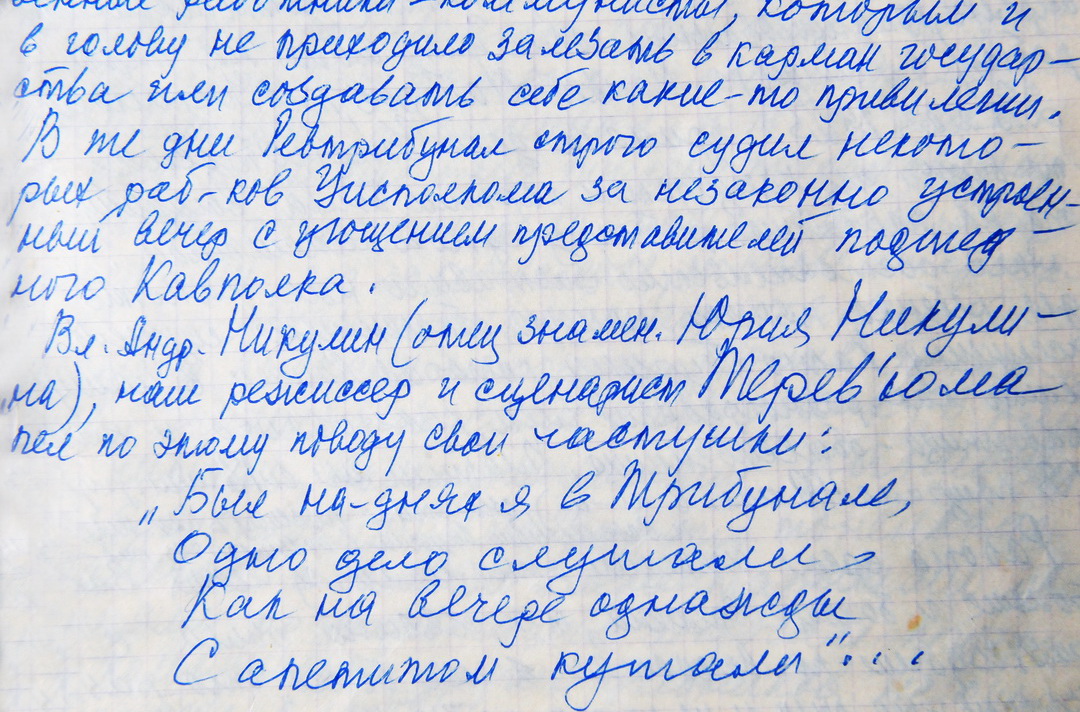 венные работники-коммунисты, которым и
в голову не приходило залезать в карман государ-
ства или создавать себе какие-то привилегии.
В те дни Ревтрибунал строго судил некото-
рых раб-ков Уисполкома за незаконно устроен-
ный вечер с угощением представителей подшеф-
ного Кавполка.
Вл. Андр. Никулин (отец знамен. Юрия Никули-
на), наш режиссер и сценарист Терев'юма
пел по этому поводу свои частушки:
„Был на-днях я в Трибунале,
Одно дело слушали
Как на вечере однажды
С апетитом кушали"...